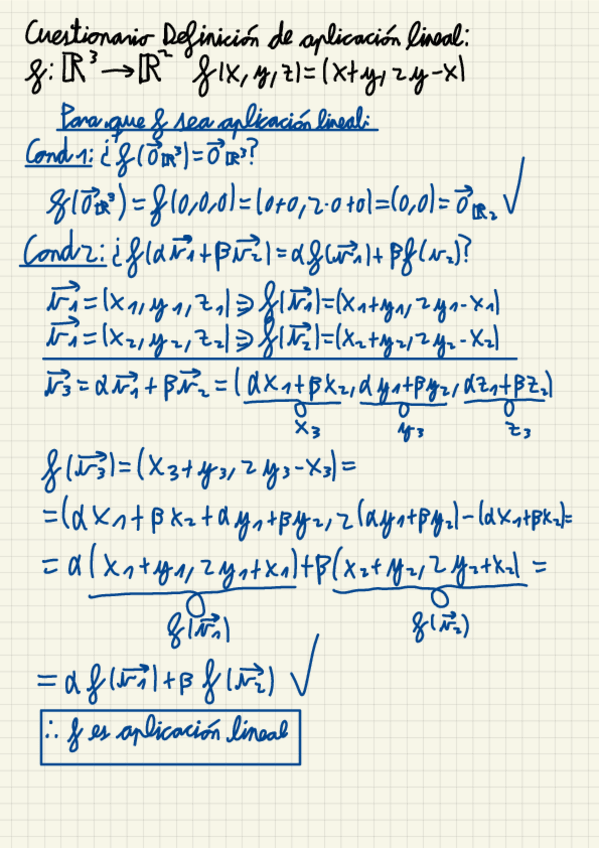 Cuestionario Definición de aplicación lineal:
f: ℝ³ → ℝ² f(x, y, z) = (x+y, 2y-x)
Para que f sea aplicación lineal:
Cond 1: ¿f(0⃗ℝ³) = 0⃗ℝ³?
f(0⃗ℝ³) = f(0,0,0) = (0+0, 2·0+0) = (0,0) = 0⃗ℝ₂ ✓
Cond 2: ¿f(αv⃗₁ + βv⃗₂) = αf(v⃗₁) + βf(v₂)?
v⃗₁ = (x₁, y₁, z₁) ⇒ f(v⃗₁) = (x₁+y₁, 2y₁-x₁)
v⃗₁ = (x₂, y₂, z₂) ⇒ f(v⃗₂) = (x₂+y₂, 2y₂-x₂)
v⃗₃ = αv⃗₁ + βv⃗₂ = (αx₁+βx₂, αy₁+βy₂, αz₁+βz₂)
x₃ y₃ z₃
f(v⃗₃) = (x₃+y₃, 2y₃-x₃) =
= (αx₁+βx₂+αy₁+βy₂, 2(αy₁+βy₂)-(αx₁+βx₂)=
= α(x₁+y₁, 2y₁+x₁)+β(x₂+y₂, 2y₂+x₂) =
f(v⃗₁) f(v⃗₂)
= αf(v⃗₁)+βf(v⃗₂) ✓
∴ f es aplicación lineal